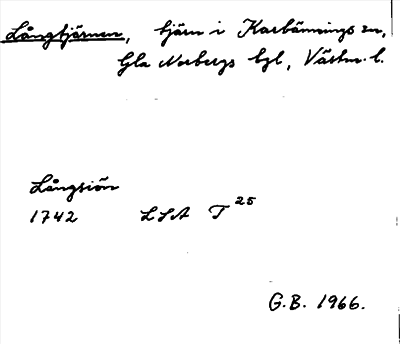 Långtjärnen, tjärn i Karbennings sn,
Gla Norbergs bgl, Västm. l.
Långsiön
1742 LSA T 25
G.B. 1966.